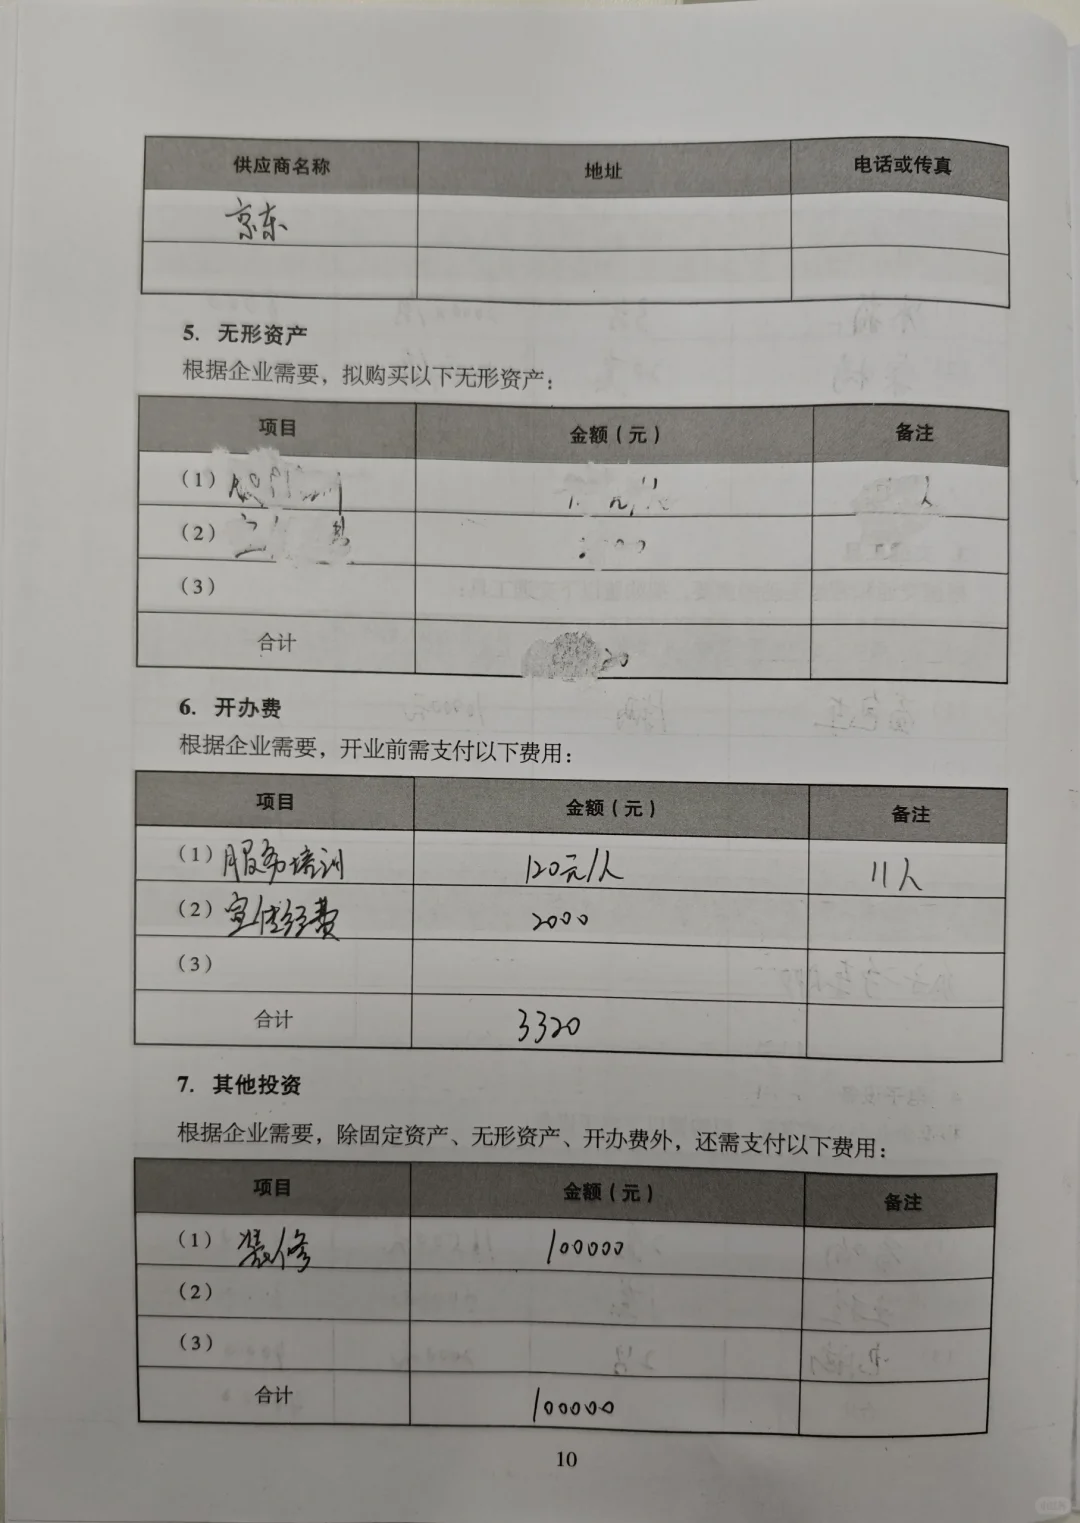 供应商名称 地址 电话或传真
京东
5. 无形资产
根据企业需要，拟购买以下无形资产：
项目 金额（元） 备注
（1） 人
（2）
（3）
合计
6. 开办费
根据企业需要，开业前需支付以下费用：
项目 金额（元） 备注
（1）服务培训 120元/人 11人
（2）宣传经费 2000
（3）
合计 3320
7. 其他投资
根据企业需要，除固定资产、无形资产、开办费外，还需支付以下费用：
项目 金额（元） 备注
（1）装修 100000
（2）
（3）
合计 100000
10